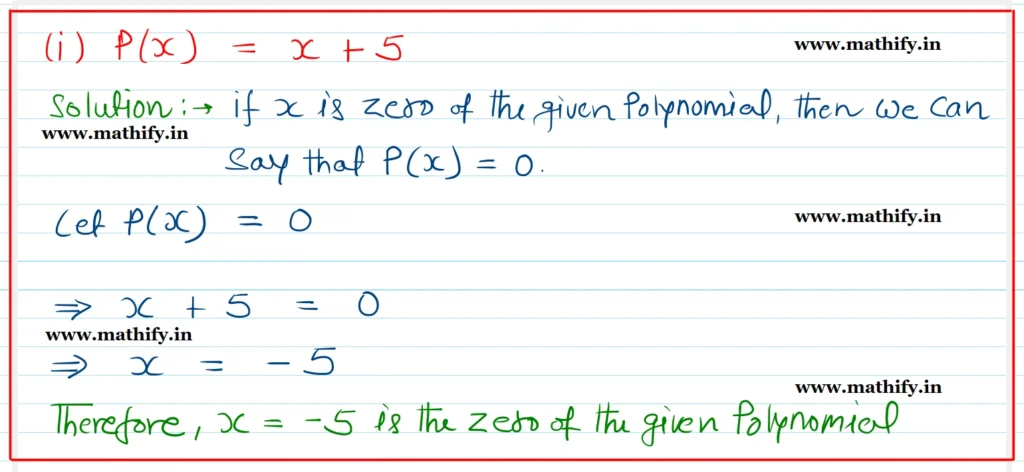 (i) P(x) = x + 5
www.mathify.in
Solution :→ if x is zero of the given Polynomial, then we can
www.mathify.in
Say that P(x) = 0.
Let P(x) = 0
www.mathify.in
⇒ x + 5 = 0
www.mathify.in
⇒ x = - 5
www.mathify.in
Therefore, x = -5 is the zero of the given Polynomial